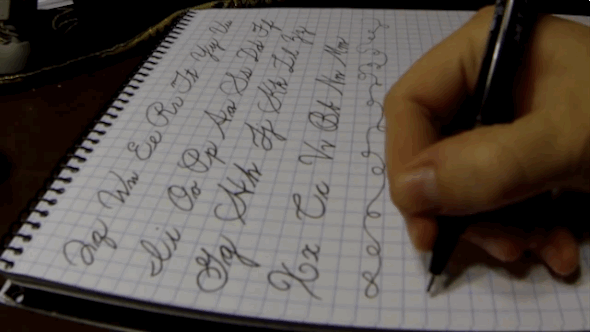 Qq Ww Ee Rr Tt Yy Uu
Ii Oo Pp Aa Ss Dd Ff
Gg Hh Jj Kk Ll Zz
Xx Cc Vv Bb Nn Mm